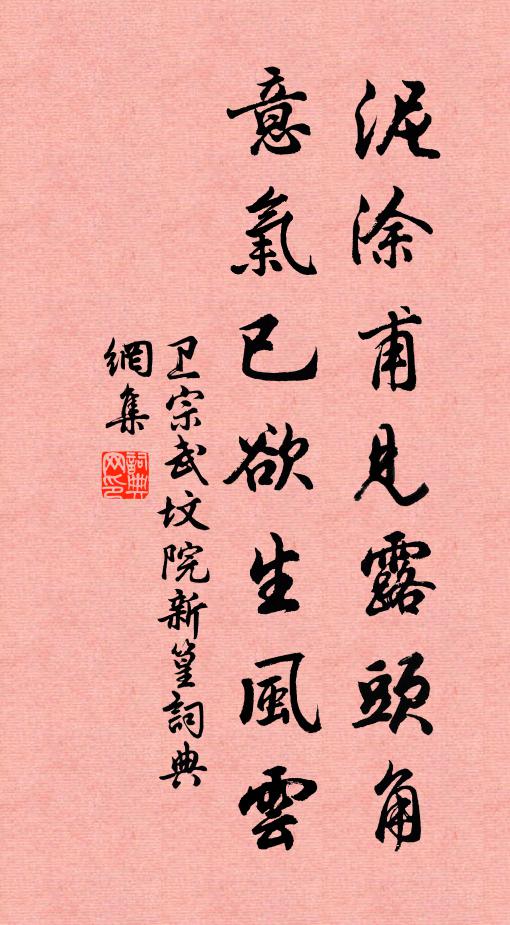 泥涂甫見露頭角
意氣已欲生風雲
卫宗武坟院新篁詞典
網集
詞典
网印